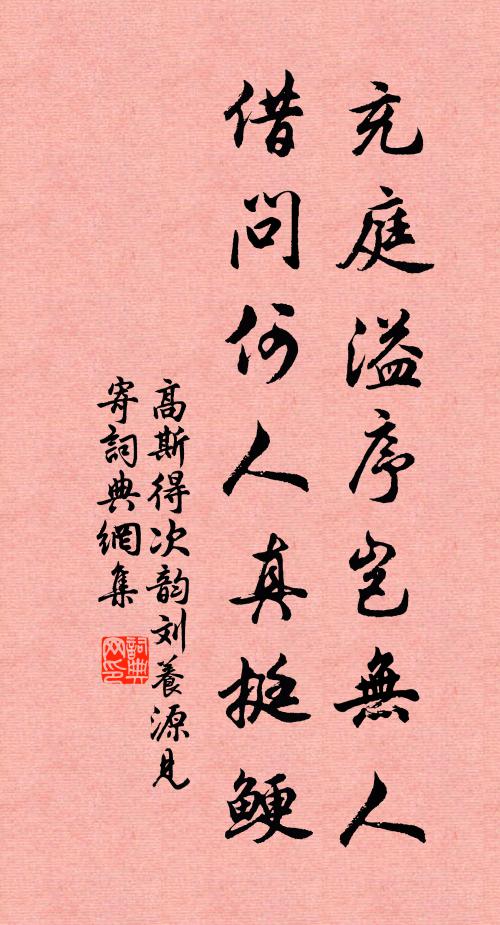 充庭溢序岂無人
借問何人真挺鯁
高斯得次韵刘養源見
寄詞典網集
詞典网印